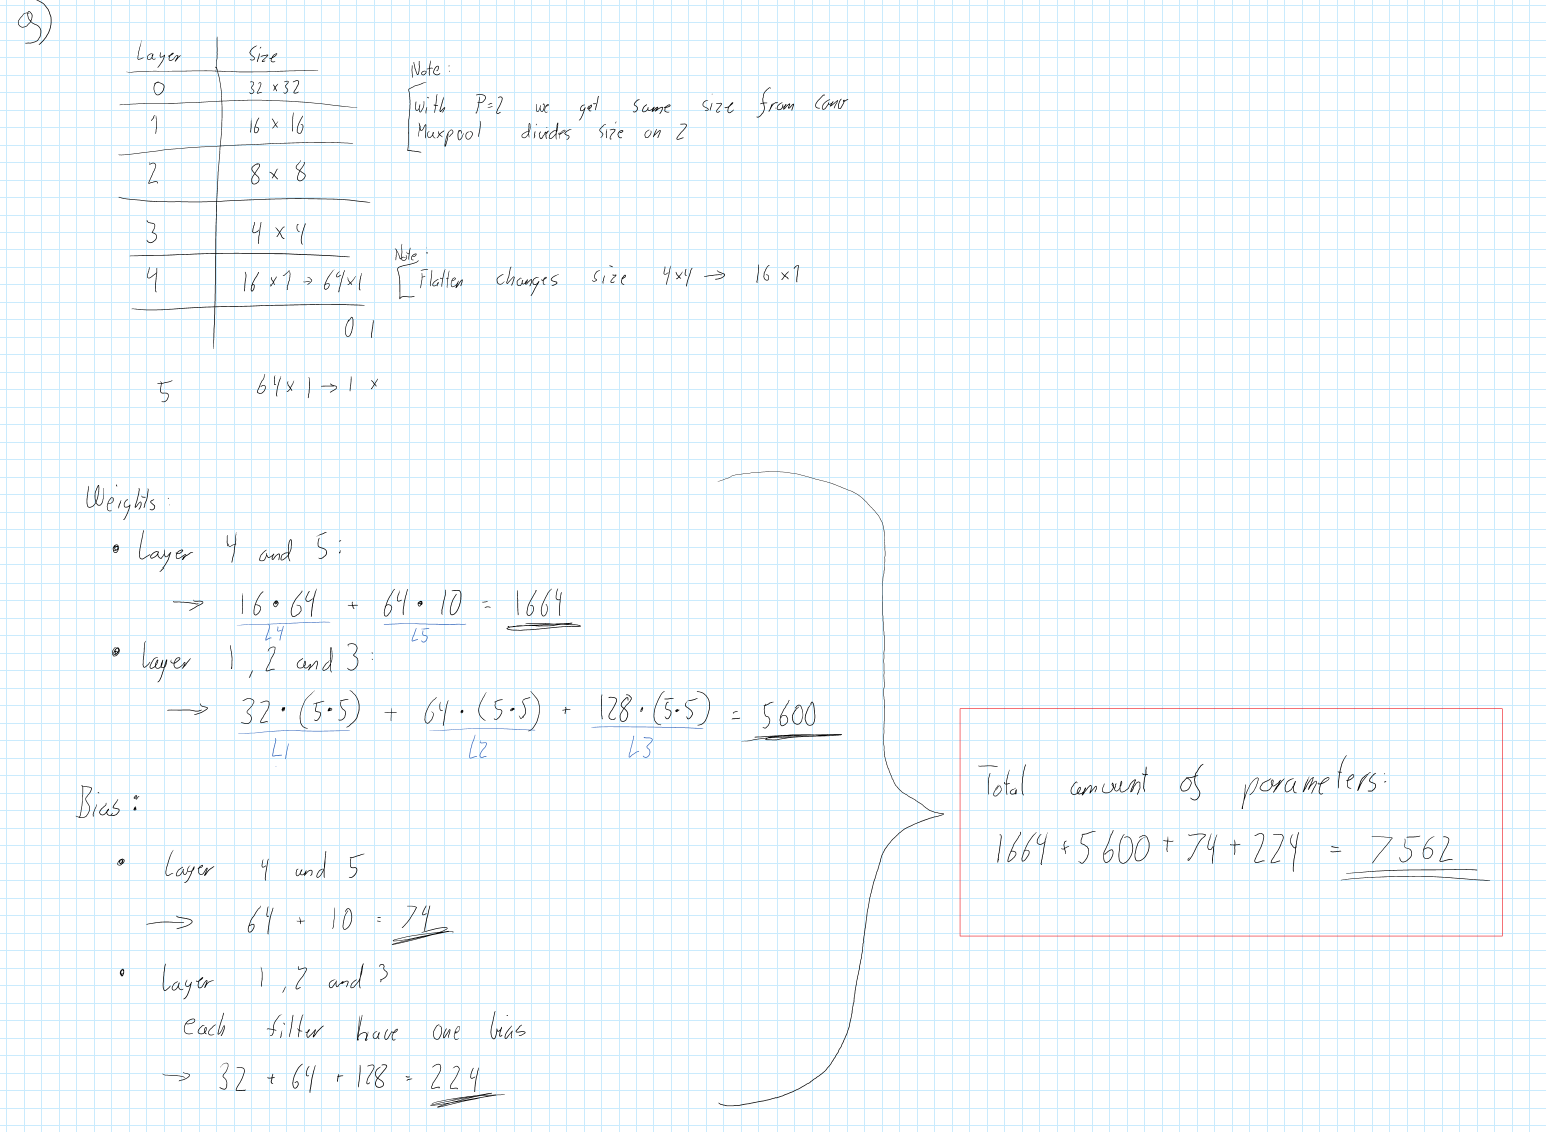 g)
Layer Size
0 32 × 32
1 16 × 16
2 8 × 8
3 4 × 4
4 16 × 1 → 64×1
0 1
5 64 × 1 → 1 ×
Note:
With P=2 we get same size from conv
Maxpool divides size on 2
Note:
Flatten changes size 4×4 → 16 ×1
Weights:
• Layer 4 and 5:
→ 16 • 64 + 64 • 10 = 1664
L4 L5
• Layer 1, 2 and 3:
→ 32 • (5•5) + 64 • (5•5) + 128 • (5•5) = 5600
L1 L2 L3
Bias:
• Layer 4 and 5
→ 64 + 10 = 74
• Layer 1, 2 and 3
each filter have one bias
→ 32 + 64 + 128 = 224
Total amount of parameters:
1664 + 5600 + 74 + 224 = 7562